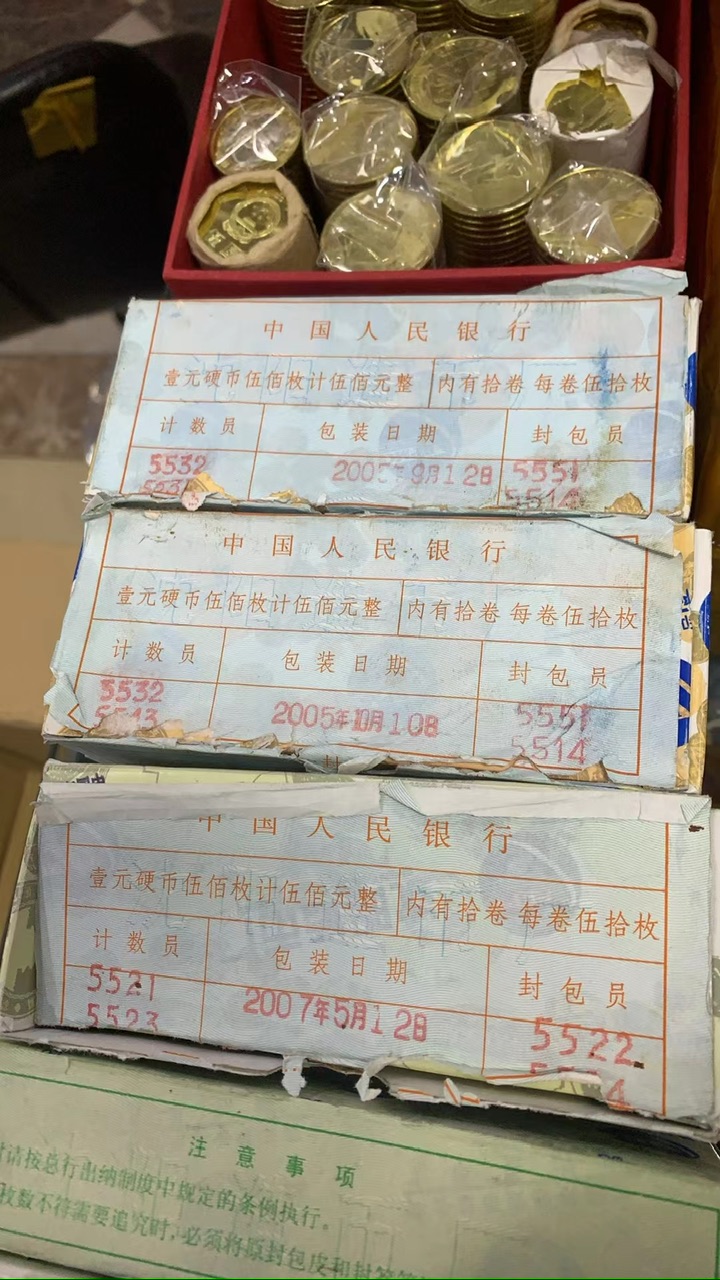 中国人民银行
壹元硬币伍佰枚计伍佰元整 内有拾卷 每卷伍拾枚
计数员 包装日期 封包员
5532 2005年9月12日 5551
5514
中国人民银行
壹元硬币伍佰枚计伍佰元整 内有拾卷 每卷伍拾枚
计数员 包装日期 封包员
5532 2005年10月10日 5551
5514
封
中国人民银行
壹元硬币伍佰枚计伍佰元整 内有拾卷 每卷伍拾枚
计数员 包装日期 封包员
5521 2007年5月12日 5522
5523
注意事项
请按总行出纳制度中规定的条例执行。
枚数不符需要追究时，必须将原封包皮和封签等